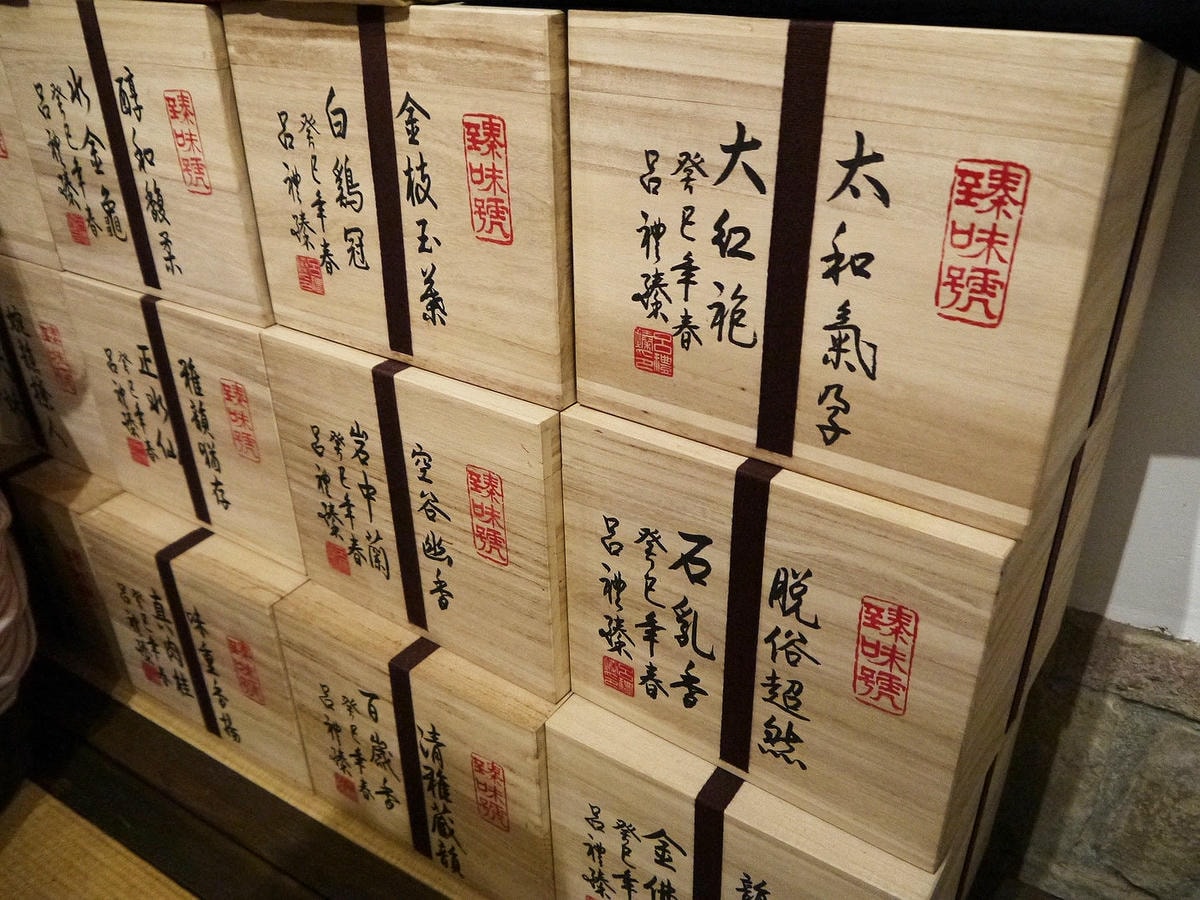 臻味號
太和氣孕
大紅袍
癸巳年春
呂禮臻
臻味號
金枝玉葉
白鷄冠
癸巳年春
呂禮臻
臻味號
醇和馥柔
水金龜
癸巳年春
呂禮臻
臻味號
脫俗超然
石乳香
癸巳年春
呂禮臻
臻味號
空谷幽香
岩中蘭
癸巳年春
呂禮臻
臻味號
雅韻猶存
正水仙
癸巳年春
呂禮臻
金佛
癸巳年
呂禮臻
臻味號
清雅蘊韻
百歲香
癸巳年春
呂禮臻
臻味號
味重香揚
真肉桂
癸巳年春
呂禮臻